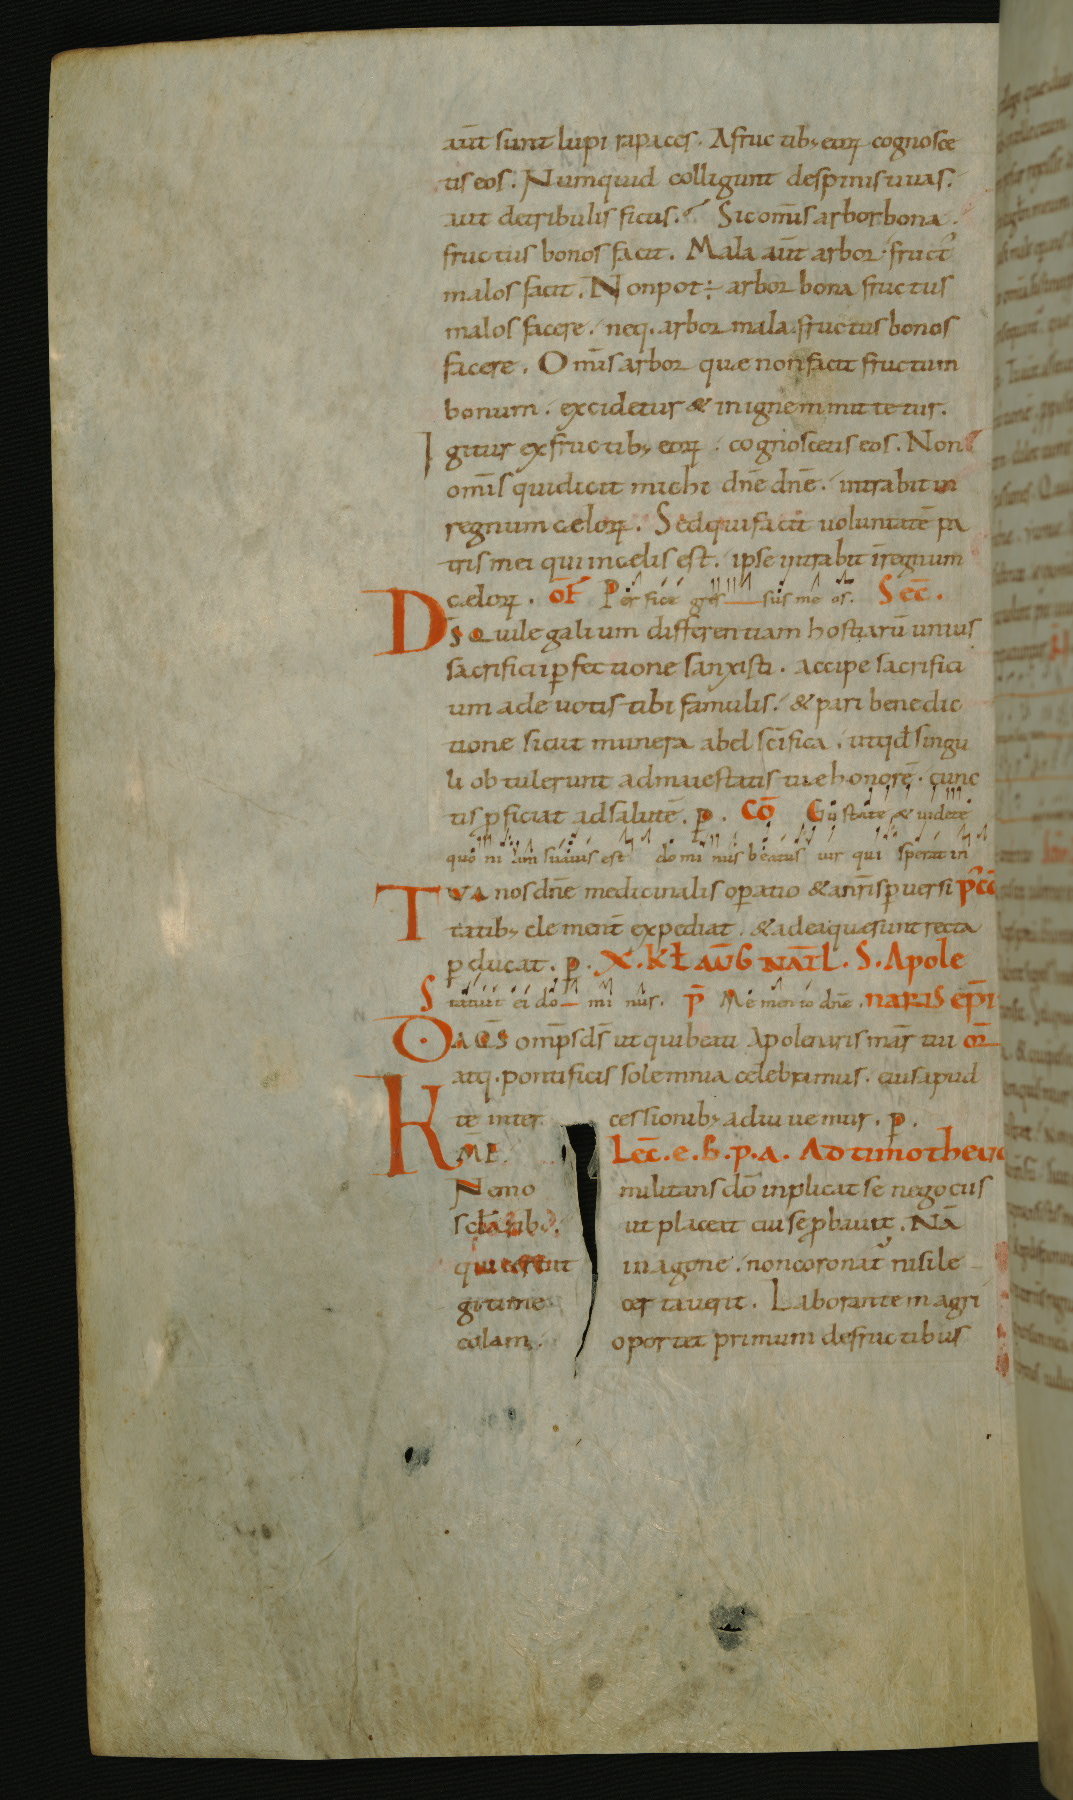 aūt sunt lupi rapaces. A fructib; eoꝝ cognosce
tis eos. Numquid colligunt de spinis uuas.
aut de tribulis ficus. Sic om̄is arbor bona
fructus bonos facit. Mala aūt arbor fruct᷒
malos facit. Non pot÷ arbor bona fructus
malos facere. neq. arbor mala fructus bonos
facere. Om̄is arbor que non facit fructum
bonum. excidetur & in ignem mittetur.
Igitur ex fructib; eoꝝ cognoscetis eos. Non
om̄is qui dicit michi dn̄e dn̄e. intrabit in
regnum celoꝝ. Sed qui facit uoluntatē pa
tris mei qui in celis est. ipse intrabit ī regnum
celoꝝ. OF̄ Perfice gres suus me os. SEC̄.
DS̄ Qui legalium differentiam hostiarū unius
sacrificii ꝑfectione sanxisti. accipe sacrifici
um a deuotis tibi famulis. & pari benedic
tione sicut munera abel scīfica. ut qđ singu
li obtulerunt ad maiestatis tue honorē. cunc
tis ꝓficiat ad salutē. p. CŌ Gustate & uidete
quo ni am suauis est do mi nus beatus uir qui sperat in
TUA nos dn̄e medicinalis oꝑatio & a nr̄is ꝑuersi p̄cō
tatib; clement̄ expediat. & ad ea que sunt recta
ꝑducat. p. X. KŁ AUG NATL̄. S. Apole
Statuit ei do mi nus. p̄ Memento dn̄e. naris ep̄i
OM̄S omp̄s ds̄ ut qui beati Apolenaris mar̄ tui OR̄
atq. pontificis solemnia celebramus. eius apud
te inter cessionib; adiuuemur. p.
KME. LEC̄. e. B. p. a. Ad timotheū
Nemo militans dō inplicat se negociis
sclarib; ut placeat cui se ꝓbauit. Nā
qui certat in agone. non coronat᷒ nisi le
gitime certauerit. Laborantem agri
colam. oportet primum de fructibus